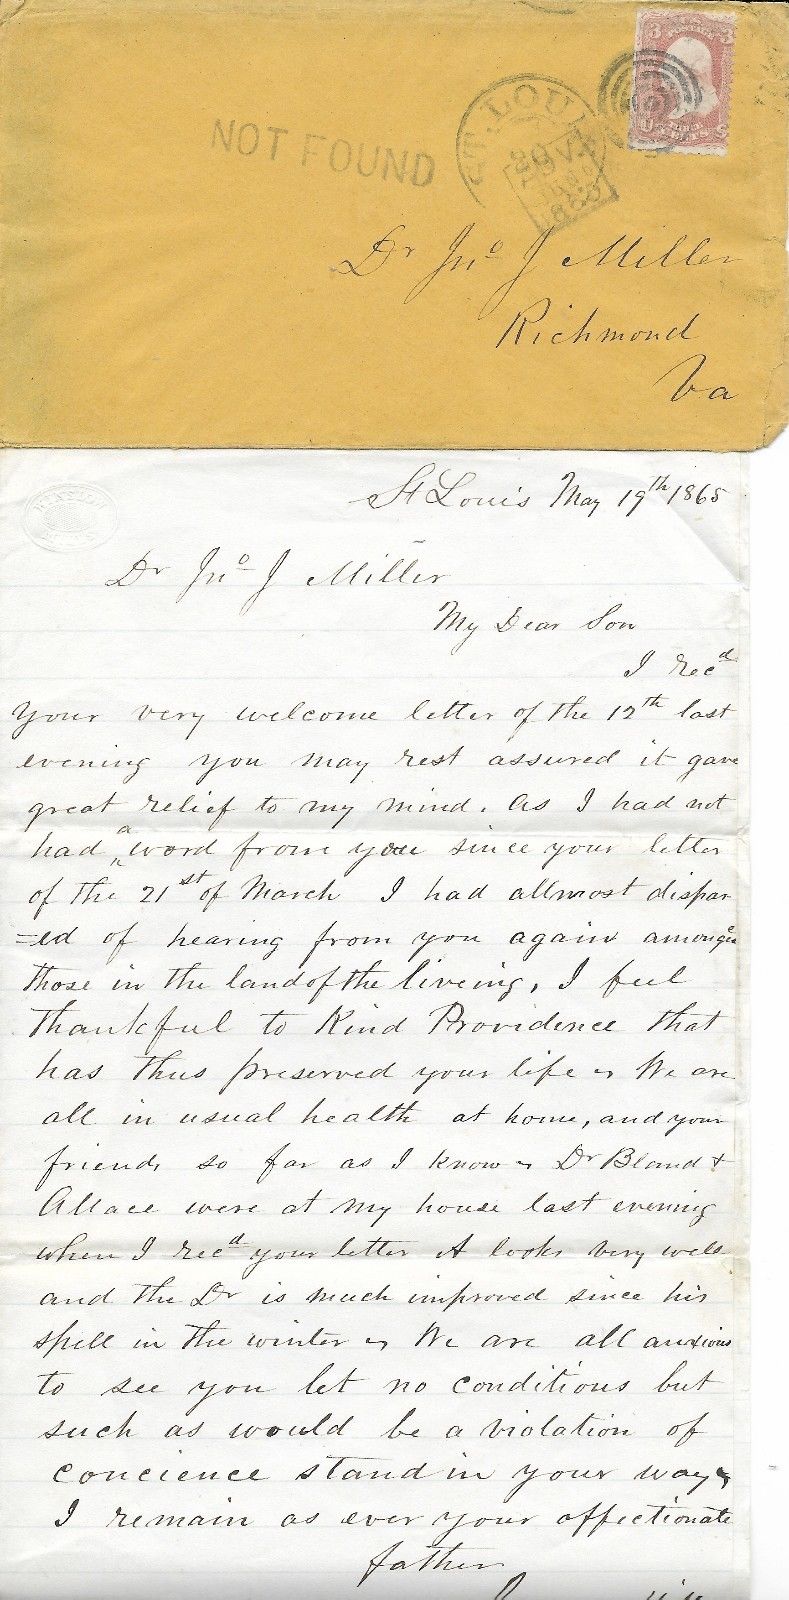 3 3
U S
NOT FOUND
ST. LOUI
20
1865
Dr Jno J Miller
Richmond
Va
St Louis May 19th 1865
Dr Jno J Miller
My Dear Son
I recd
your very welcome letter of the 12th last
evening you may rest assured it gave
great relief to my mind. As I had not
had a word from you since your letter
of the 21st of March I had allmost dispar
=ed of hearing from you again amongst
those in the land of the liveing, I feel
thankful to Kind Providence that
has thus preserved your life We are
all in usual health at home, and your
friends so far as I know Dr Bland &
Allace were at my house last evening
when I recd your letter A looks very well
and the Dr is much improved since his
spell in the winter We are all anxious
to see you let no conditions but
such as would be a violation of
concience stand in your way
I remain as ever your affectionate
father